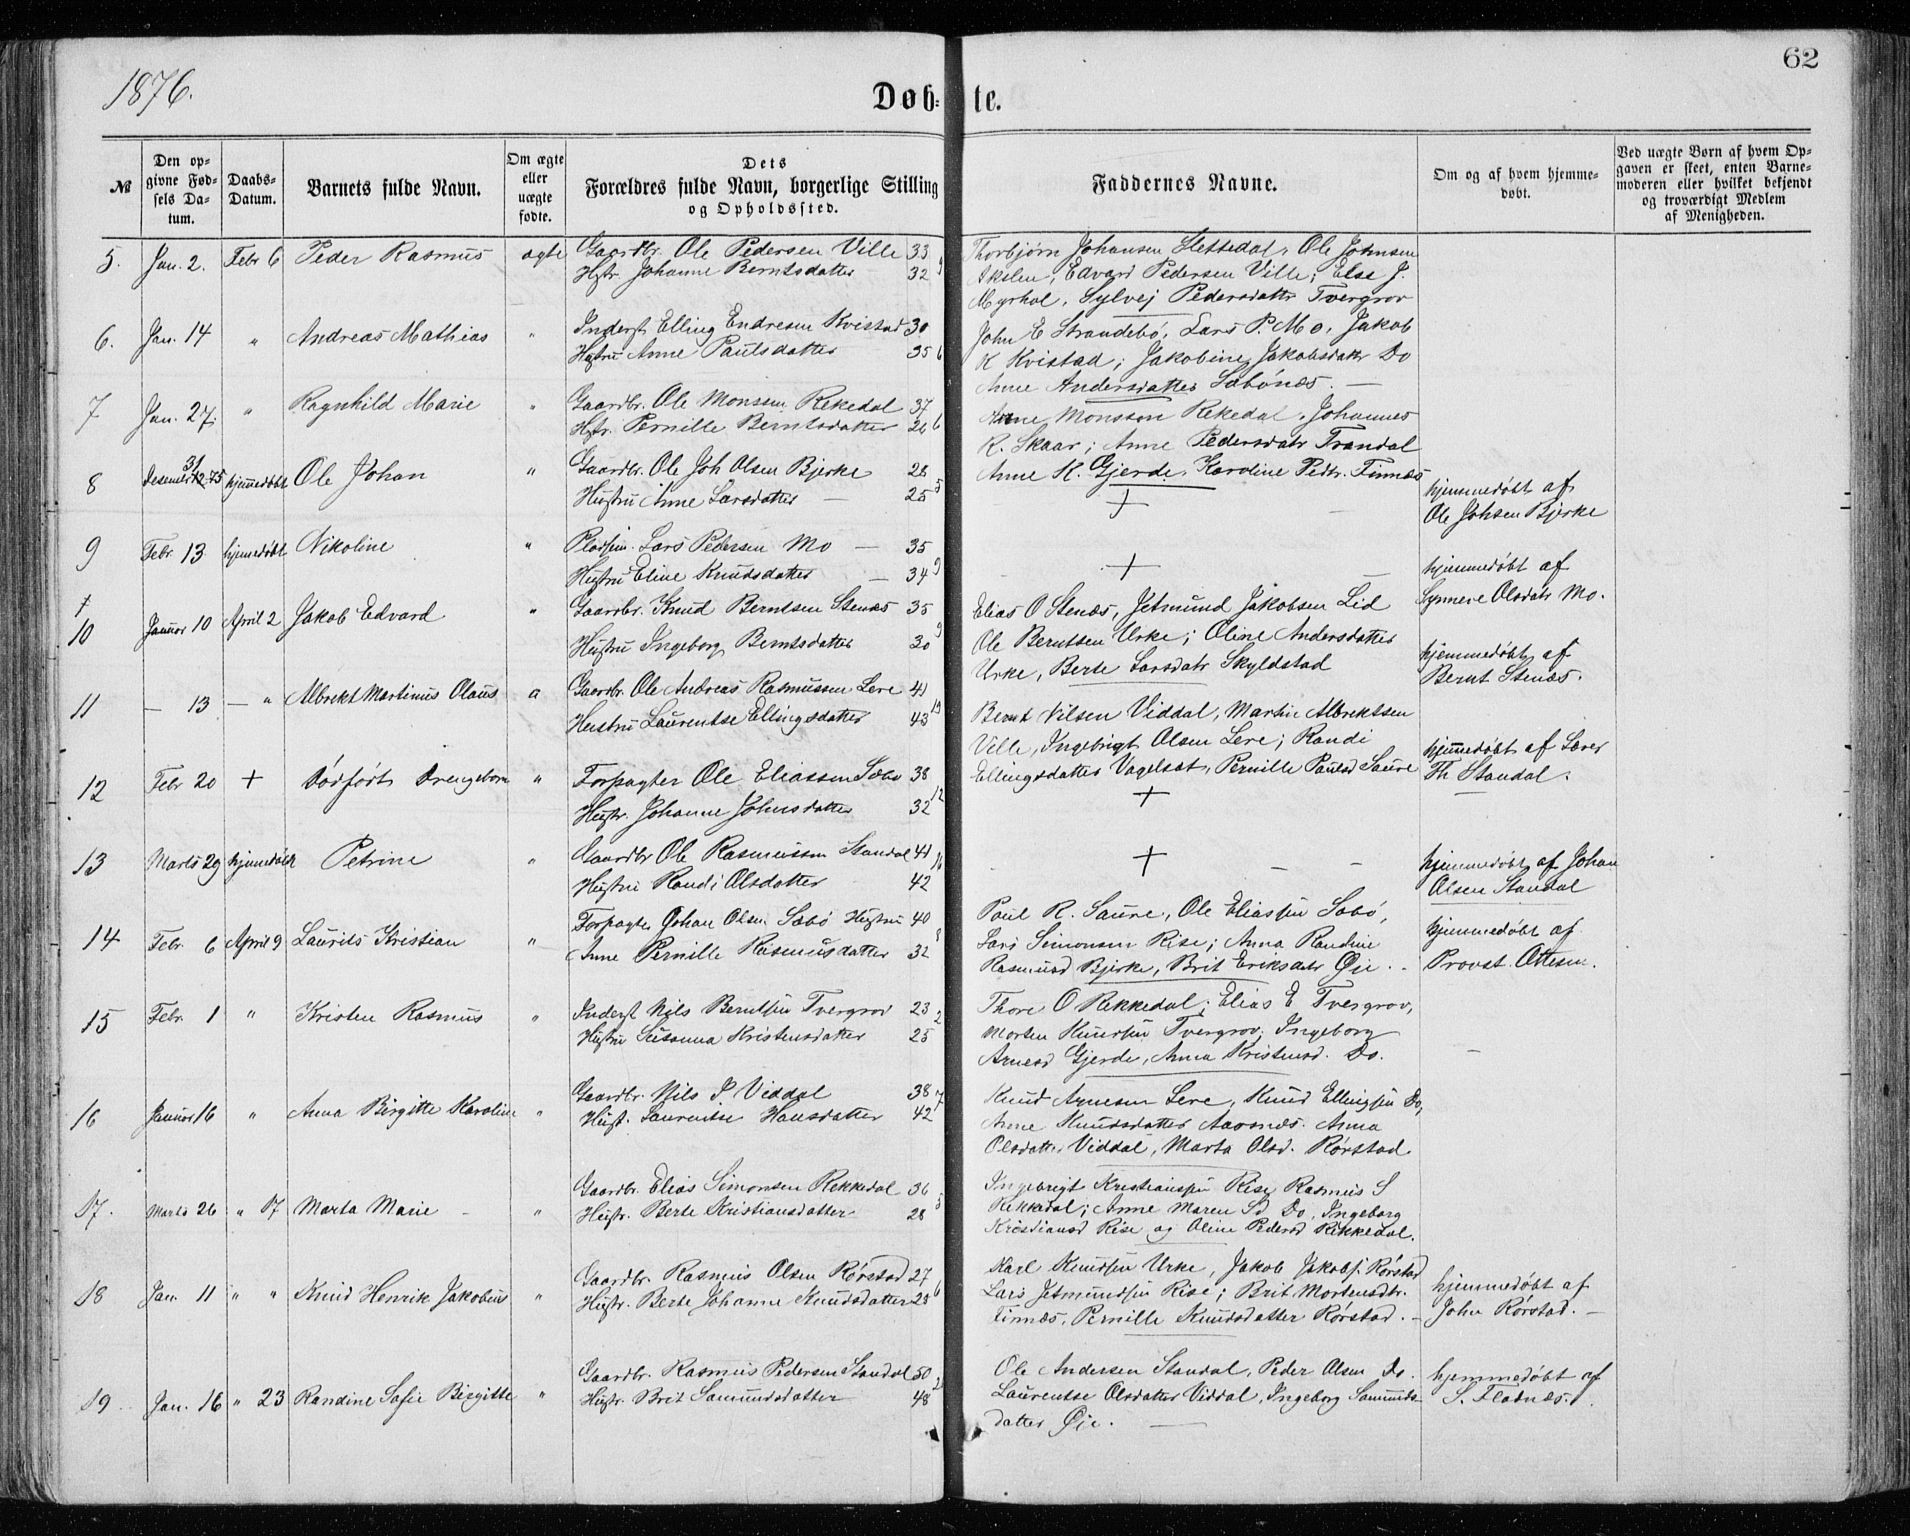 62
1876.
Døb- te.
№
Den opgivne Fødsels Datum.
Daabs-Datum.
Barnets fulde Navn.
Om ægte eller uægte fødte.
Dets Forældres fulde Navn, borgerlige Stilling og Opholdssted.
Faddernes Navne.
Om og af hvem hjemmedøbt.
Ved uægte Børn af hvem Opgaven er skeet, enten Barnemoderen eller hvilket bekjendt og troværdigt Medlem af Menigheden.
5. Jan. 2. Febr 6 Peder Rasmus ægte Gaardbr. Ole Pedersen Ville 33
Hstr. Johanne Berntsdatter 32
Thorbjørn Johansen Slettedal, Ole Johnsen
Edvard Pedersen Ville; Else J.
Myrhol, Sylvej Pedersdatter Tvergrov
6. Jan. 14 " Andreas Mathias " Inderst Elling Endresen Kvistad 30
Hustru Anne Paulsdatter 35 6
John E Strandebø, Lars P. Mo, Jakob
K Kvistad; Jakobine Jakobsdatr Do
Anne Andersdatter Sæbønes. —
7 Jan. 27. " Ragnhild Marie " Gaardbr. Ole Monsen Rekedal 37
Hstr. Pernille Berntsdatter 26 6
Arne Monsson Rekedal, Johannes
R. Skaar; Anne Pedersdatr Trandal
Anne K. Gjerde, Karoline Pedtr. Finnæs
8 Desember 31 12.75 hjemmedøbt Ole Johan " Gaardbr. Ole Joh Olsen Bjerke 28
Hustru Anne Larsdatter — 25 5
+
hjemmedøbt af
Ole Johsen Bjerke
9 Febr. 13 hjemmedøbt Nikoline " Pladsm. Lars Pedersen Mo — 35
Hustru Eline Knudsdatter — 34 9
+
hjemmedøbt af
Synneve Olsdatr Mo.
†
10 Januar 10 April 2 Jakob Edvard " Gaardbr. Knud Berntsen Stenæs 35
Hustru Ingeborg Berntsdatter 30 9
Elias O Stenæs, Jetmund Jakobsen Lid
Ole Berntsen Urke; Oline Andersdatter
Urke, Berte Larsdatr Skyldstad
hjemmedøbt af
Bernt Stenæs.
11 — 13 — " Albrekt Martinus Olaus a Gaardbr. Ole Andreas Rasmussen Lere 41
Hustru Laurentse Ellingsdatter 43 19
Bernt Nilsen Viddal, Martin Albrektsen
Ville, Ingebrigt Olsen Lere; Randi
Ellingsdatter Vagelsæt, Pernille Paulsd Saure
hjemmedøbt af Lærer
Th. Standal.
12 Febr 20 + Dødfødt Drengebarn " Forpagter Ole Eliassen Sæbø 38
Hustr. Johanne Johnsdatter 32 12
+
13 Marts 29 hjemmedøbt Petrine " Gaardbr Ole Rasmussen Standal 41
Hustru Randi Olsdatter 42 16
+ — —
hjemmedøbt af Johan
Olsen Standal
14 Febr. 6 April 9 Laurits Kristian " Forpagter Johan Olsen Sæbø Hustru 40
Anne Pernille Rasmusdatter 32 8
Paul R. Saure, Ole Eliassen Sæbø,
Lars Simonsen Rise; Anna Randine
Rasmusd Bjerke, Brit Eriksdatr Øie.
hjemmedøbt af
Provst Ottesen.
15 Febr. 1 " Kristen Rasmus " Inderst Nils Berntsen Tvergrov 23 2
Hustru Susanna Kristensdatter 25
Thore O Rekkedal; Elias E Tvergrov,
Morten Knudsen Tvergrov; Ingeborg
Arnesd Gjerde, Anna Kristensd. Do.
16 Januar 16 " Anna Birgitte Karoline " Gaardbr. Nils P Viddal 38 7
Hust. Laurentse Hansdatter 42
Knud Arnesen Lere, Knud Ellingsen Do,
Anne Knudsdatter Aarsnes. Anna
Olsdatter Viddal, Marta Olsd. Rørstad.
17. Marts 26 " 17 Marta Marie " Gaardbr. Elias Simonsen Rekkedal 36
Hustr. Berte Kristiansdatter 28
Ingebrigt Kristiansen Rise Rasmus S
Rekkedal; Anne Maren Sd Do, Ingeborg
Kristiansd Rise og Oline Pedersd Rekkedal.
18 Jan. 11 " " Knud Henrik Jakobus " Gaardbr. Rasmus Olsen Rørstad 27
Hustr. Berte Johanne Knudsdatter 25 6
Karl Knudsen Urke, Jakob Jakobs. Rørstad
Lars Jetmundsen Rise; Brit Mortensdtr.
Finnæs, Pernille Knudsdatter Rørstad. —
hjemmedøbt af
John Rørstad. —
19 Jan. 16 " 23 Randine Sofie Birgitte " Gaardbr. Rasmus Pedersen Standal 50
Hustr. Brit Samundsdatter 48
Ole Andersen Standal, Peder Olsen Do.
Laurentse Olsdatter Viddal, Ingeborg Samunds-
datter Øie.
hjemmedøbt af
S. Fladnæs.